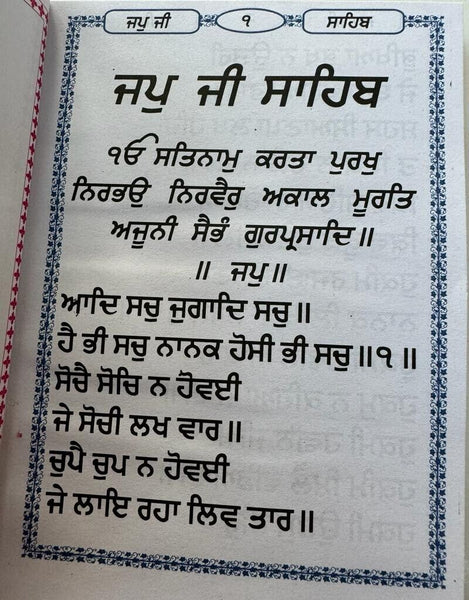 ਜਪੁ ਜੀ ੧ ਸਾਹਿਬ
ਜਪੁ ਜੀ ਸਾਹਿਬ
ੴ ਸਤਿਨਾਮੁ ਕਰਤਾ ਪੁਰਖੁ
ਨਿਰਭਉ ਨਿਰਵੈਰੁ ਅਕਾਲ ਮੂਰਤਿ
ਅਜੂਨੀ ਸੈਭੰ ਗੁਰਪ੍ਰਸਾਦਿ॥
॥ ਜਪੁ॥
ਆਦਿ ਸਚੁ ਜੁਗਾਦਿ ਸਚੁ॥
ਹੈ ਭੀ ਸਚੁ ਨਾਨਕ ਹੋਸੀ ਭੀ ਸਚੁ॥੧॥
ਸੋਚੈ ਸੋਚਿ ਨ ਹੋਵਈ
ਜੇ ਸੋਚੀ ਲਖ ਵਾਰ॥
ਚੁਪੈ ਚੁਪ ਨ ਹੋਵਈ
ਜੇ ਲਾਇ ਰਹਾ ਲਿਵ ਤਾਰ॥